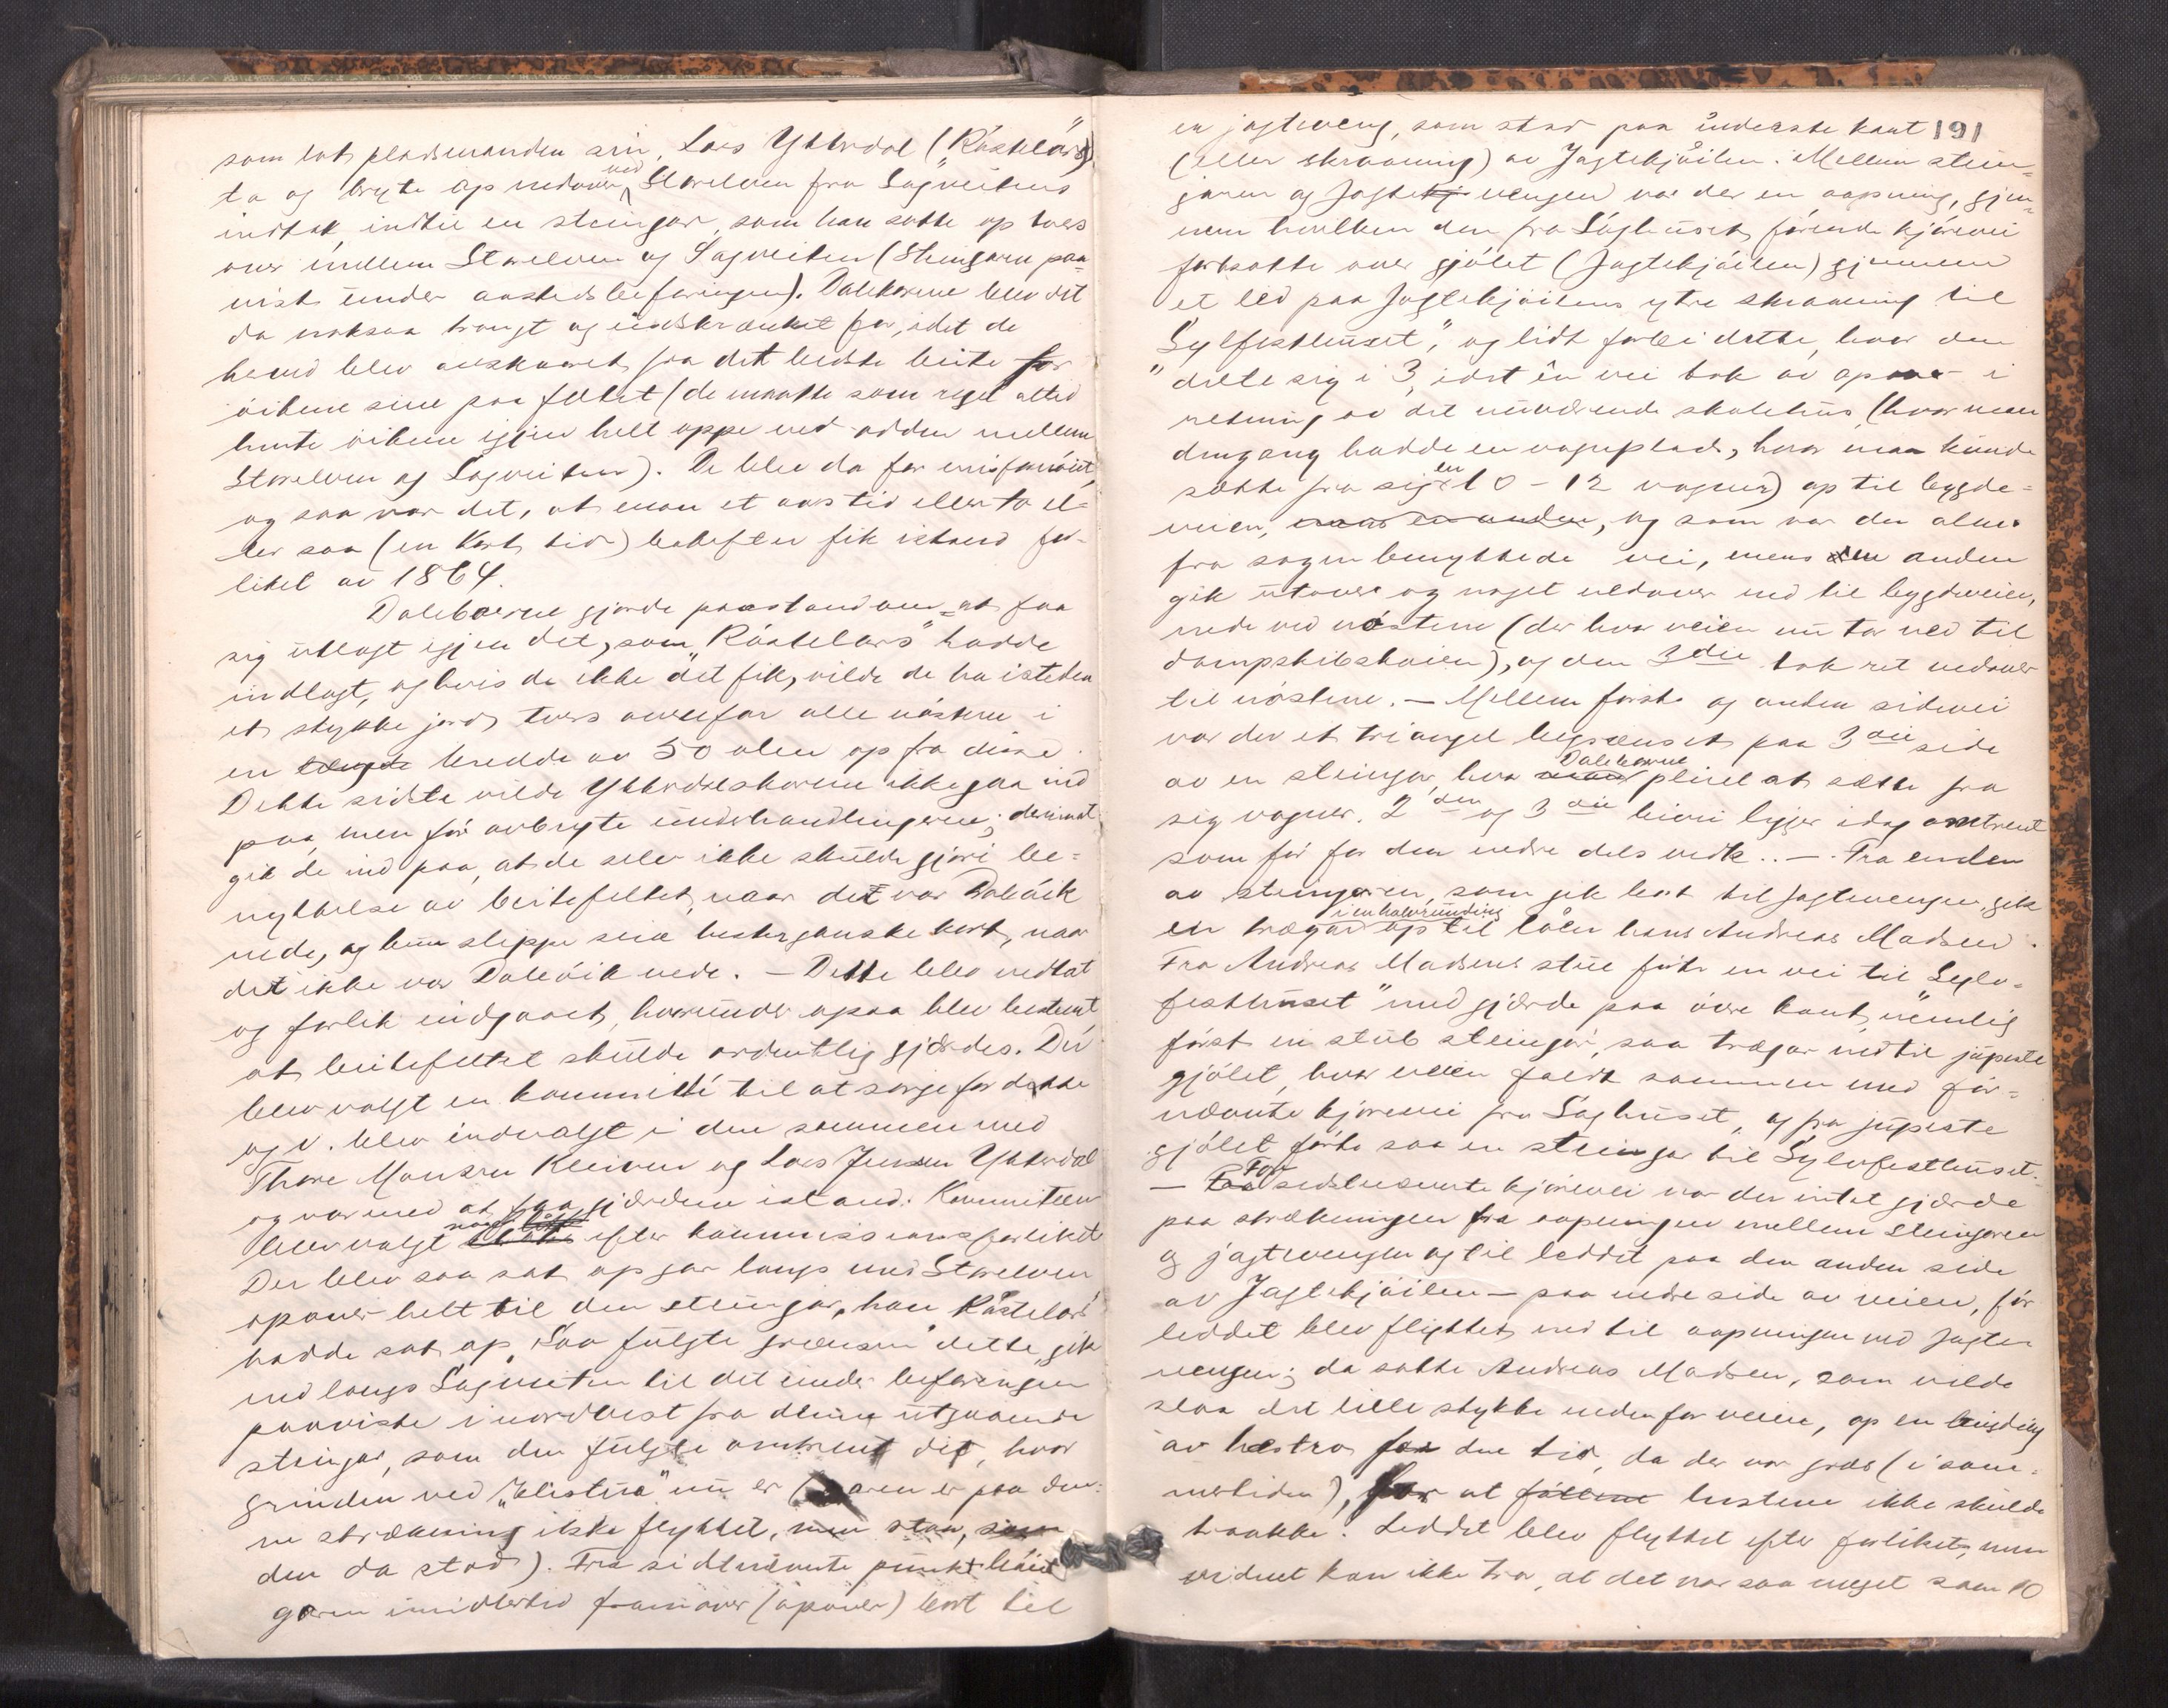 som lot pladsmanden sin, Lars Ytterdal ("Råskelars")
ta og bryte op nedover ved Storelven fra Sagveitens
indtak, indtil en steingar, som han satte op tvers
over mellem Storelven og Sagveiten (Steingaren paa-
vist under aastedsbefaringen). Dalebøerne blev det
da noksaa trangt og indskrænket for, idet de
herved blev avskaaret fra det bedste beite for
øikene sine paa feltet (de maatte som regel altid
hente øikene igjen helt oppe ved odden mellem
Storelven og Sagveiten). De blev da for misfornøiet,
og saa var det, at man et aars tid eller to el-
ler saa (en kort tid) balefter fik istand for-
liket av 1864.
Dalebøerne gjorde paastand om at faa
sig utlagt igjen det, som "Råskelars" hadde
indlagt, og hvis de ikke det fik, vilde de ha isteden
et stykke jord tvers ovenfor alle nøstene i
en længde bredde av 50 alen op fra disse.
Dette sidste vilde Ytterdalskarene ikke gaa ind
paa, men før avbryte underhandlingerne; derimot
gik de ind paa, at de selv ikke skulde gjøre be-
nyttelse av beitefeltet, naar det var Daleøik
nede, og kun slippe sine hester ganske kort, naar
det ikke var Daleøik nede. — Dette blev vedtat
og forlik indgaaet, hvorunder ogsaa blev bestemt
at beitefeltet skulde ordentlig gjærdes. Der
blev valgt en kommitté til at sørge for dette
og v. blev indvalgt i den sammen med
Thore Monsen Kleiven og Lars Jensen Ytterdal
og var med at faa gjærdene istand. Komiteen
blev valgt efter kommissionsforliket
Der blev saa sat op gar langs med Storelven
opover helt til den steingar, han Råskelars
hadde sat op. Saa fulgte grænsen dette, gik
ned langs Sagveiten til det under befaringen
paaviste i nordvest fra denne utgaaende
steingar, som den fulgte omtrent dit, hvor
grinden ved "Elistua" nu er (garen er paa den-
ne strækning ikke flyttet, men staar, som
den da stod). Fra sidstnævnte punkt bøiet
garen imidlertid framover (opover) bort til
191
en jagteveng, som stod paa inderste kant
(eller skraaning) av Jagtekjøilen. Mellem stein-
garen og Jagtekj vengen var der en aapning, gjen-
nem hvilken den fra Saghuset førende kjørevei
fortsatte over gjølet (Jagtekjøilen) gjennem
et led paa Jagtekjøilens ytre skraaning til
"Sylfesthuset", og lidt forbi dette, hvor den
delte sig i 3, idet ên vei tok av opover i
retning av det nuværende skolehus (hvor man
dengang hadde en vognplads, hvor man kunde
sætte fra sig en 10-12 vogner) op til bygde-
veien, mens en anden, og som var den alm.
fra sagen benyttede vei, mens den anden
gik utover og noget nedover ned til bygdeveien,
nede ved nøstene (der hvor veien nu tar ned til
dampskibskaien), og den 3die tok ret nedover
til nøstene. — Mellem første og anden sidevei
var der et triangel begrænset paa 3die side
av en steingar, hvor Dalebøerne pleiet at sætte fra
sig vogner. 2den og 3die vei ligger idag omtrent
som før for den nedre dels vedk. — Fra enden
av steingaren, som gik bort til jagtevengen, gik
en trægar i en halvrunding op til løen hans Andreas Madsen.
Fra Andreas Madsens stue førte en vei til Sylv-
festhuset" med gjærde paa øvre kant, nemlig
først en stub steingar, saa trægar ned til jupeste
gjølet, hvor veien faldt sammen med før-
nævnte kjørevei fra Saghuset, og fra jupeste
gjølet førte saa en steingar til Sylvfesthuset.
— For sidstnævnte kjørevei var der intet gjærde
paa strækningen fra aapningen mellem steingaren
og jagtevengen og til leddet paa den anden side
av Jagtekjøilen — paa nedre side av veien, før
leddet blev flyttet ned til aapningen ved jagte-
vengen; da satte Andreas Madsen, som vilde
slaa det lille stykke nedenfor veien, op en
av hestra for den tid, da der var græs (i som-
mertiden), for at hestene ikke skulde
traakke. Leddet blev flyttet efter forliket, men
vidnet kan ikke tro, at det var saa meget som 10